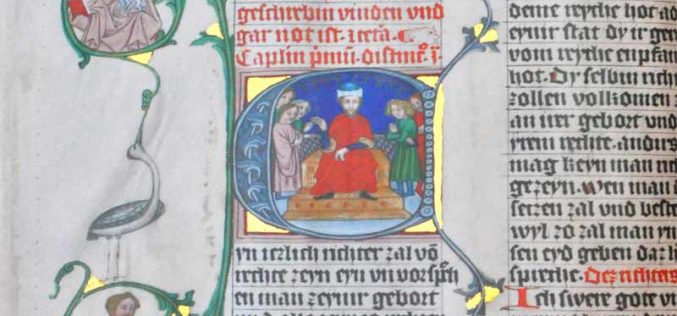 geschrebin vinden vnd
gar not ist.
yn iczlich richter zal vō
rechte zeyn eyn vn
en man zeynir gebort
deme reyche hot
eynir stat dy ir
vom reyche enpfan
hot. Dy selbin rich
zollen volkomen
an irer gebort vnd
irem rechte. anders
mag keyn man
gezeyn. wen man
seczen zal vnd beste
wyl zo zal man yn
sen eyd geben daz
spreche. Dez richters
Ich swere gote